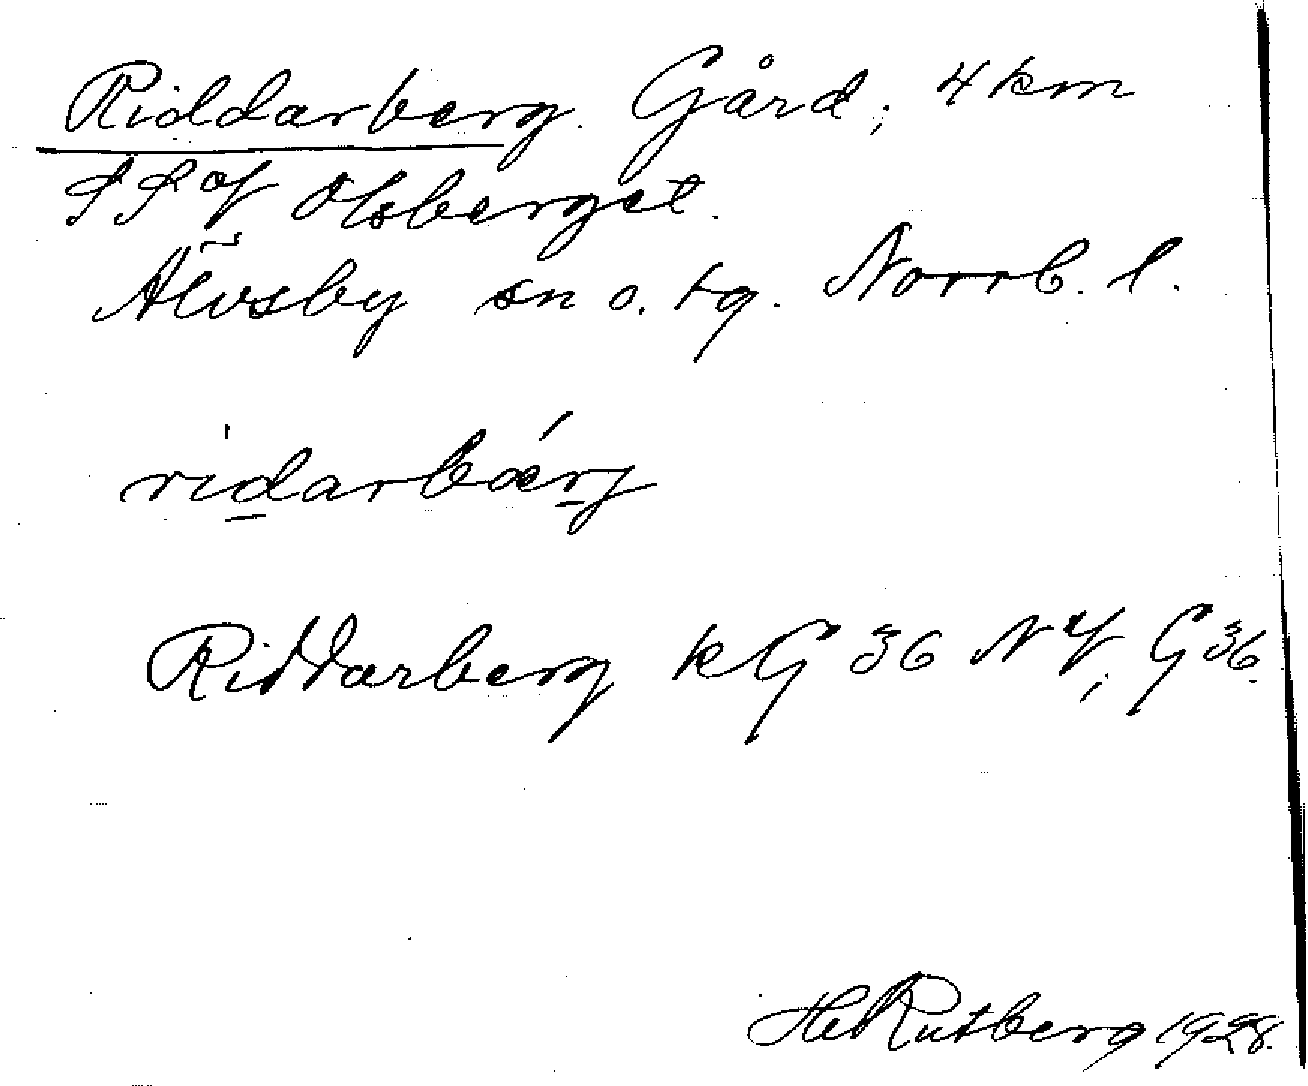 Riddarberg. Gård; 4 km
SS of Olsberget.
Älvsby sn o. tg. Norrb. l.
ri̍d̲arbǽr̲j
Riddarberg kG 36 NY; G 36.
HeRutberg 1928.